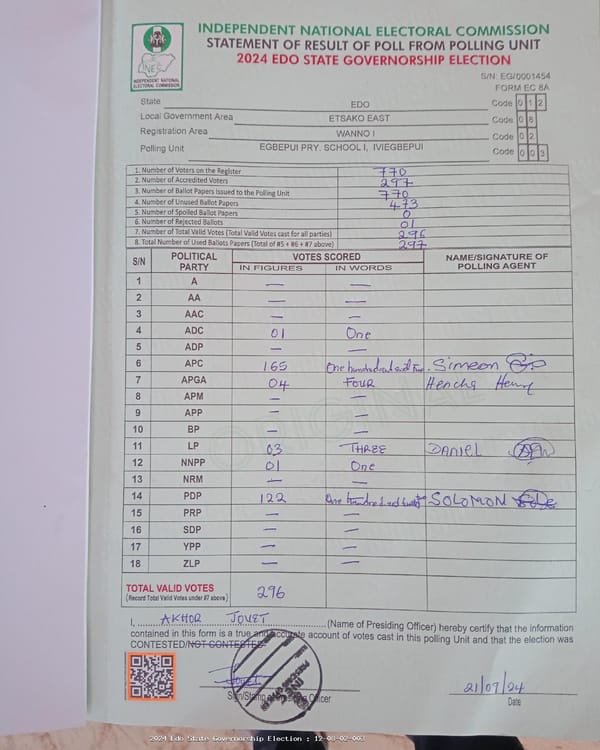 INDEPENDENT NATIONAL ELECTORAL COMMISSION
STATEMENT OF RESULT OF POLL FROM POLLING UNIT
2024 EDO STATE GOVERNORSHIP ELECTION
INEC
INDEPENDENT NATIONAL ELECTORAL COMMISSION
S/N: EG/0001454
FORM EC 8A
State EDO Code 0 1 2
Local Government Area ETSAKO EAST Code 0 8
Registration Area WANNO I Code 0 2
Polling Unit EGBEPUI PRY. SCHOOL I, IVIEGBEPUI Code 0 0 3
1. Number of Voters on the Register 770
2. Number of Accredited Voters 297
3. Number of Ballot Papers issued to the Polling Unit 770
4. Number of Unused Ballot Papers 473
5. Number of Spoiled Ballot Papers 0
6. Number of Rejected Ballots 01
7. Number of Total Valid Votes (Total Valid Votes cast for all parties) 296
8. Total Number of Used Ballots Papers (Total of #5 + #6 + #7 above) 297
S/N POLITICAL PARTY VOTES SCORED NAME/SIGNATURE OF POLLING AGENT
IN FIGURES IN WORDS
1 A — —
2 AA — —
3 AAC — —
4 ADC 01 One
5 ADP — —
6 APC 165 One hundred and Simeon
7 APGA 04 FOUR Henry
8 APM — —
9 APP — —
10 BP — —
11 LP 03 THREE DANIEL
12 NNPP 01 One
13 NRM — —
14 PDP 122 One hundred and SOLOMON
15 PRP — —
16 SDP — —
17 YPP — —
18 ZLP — —
TOTAL VALID VOTES 296
(Record Total Valid Votes under #7 above)
I, AKHOR JOVET (Name of Presiding Officer) hereby certify that the information
contained in this form is a true and accurate account of votes cast in this polling Unit and that the election was
CONTESTED/NOT CONTESTED
Sign/Stamp of Presiding Officer
21/09/24
Date
2024 Edo State Governorship Election : 12-08-02-003